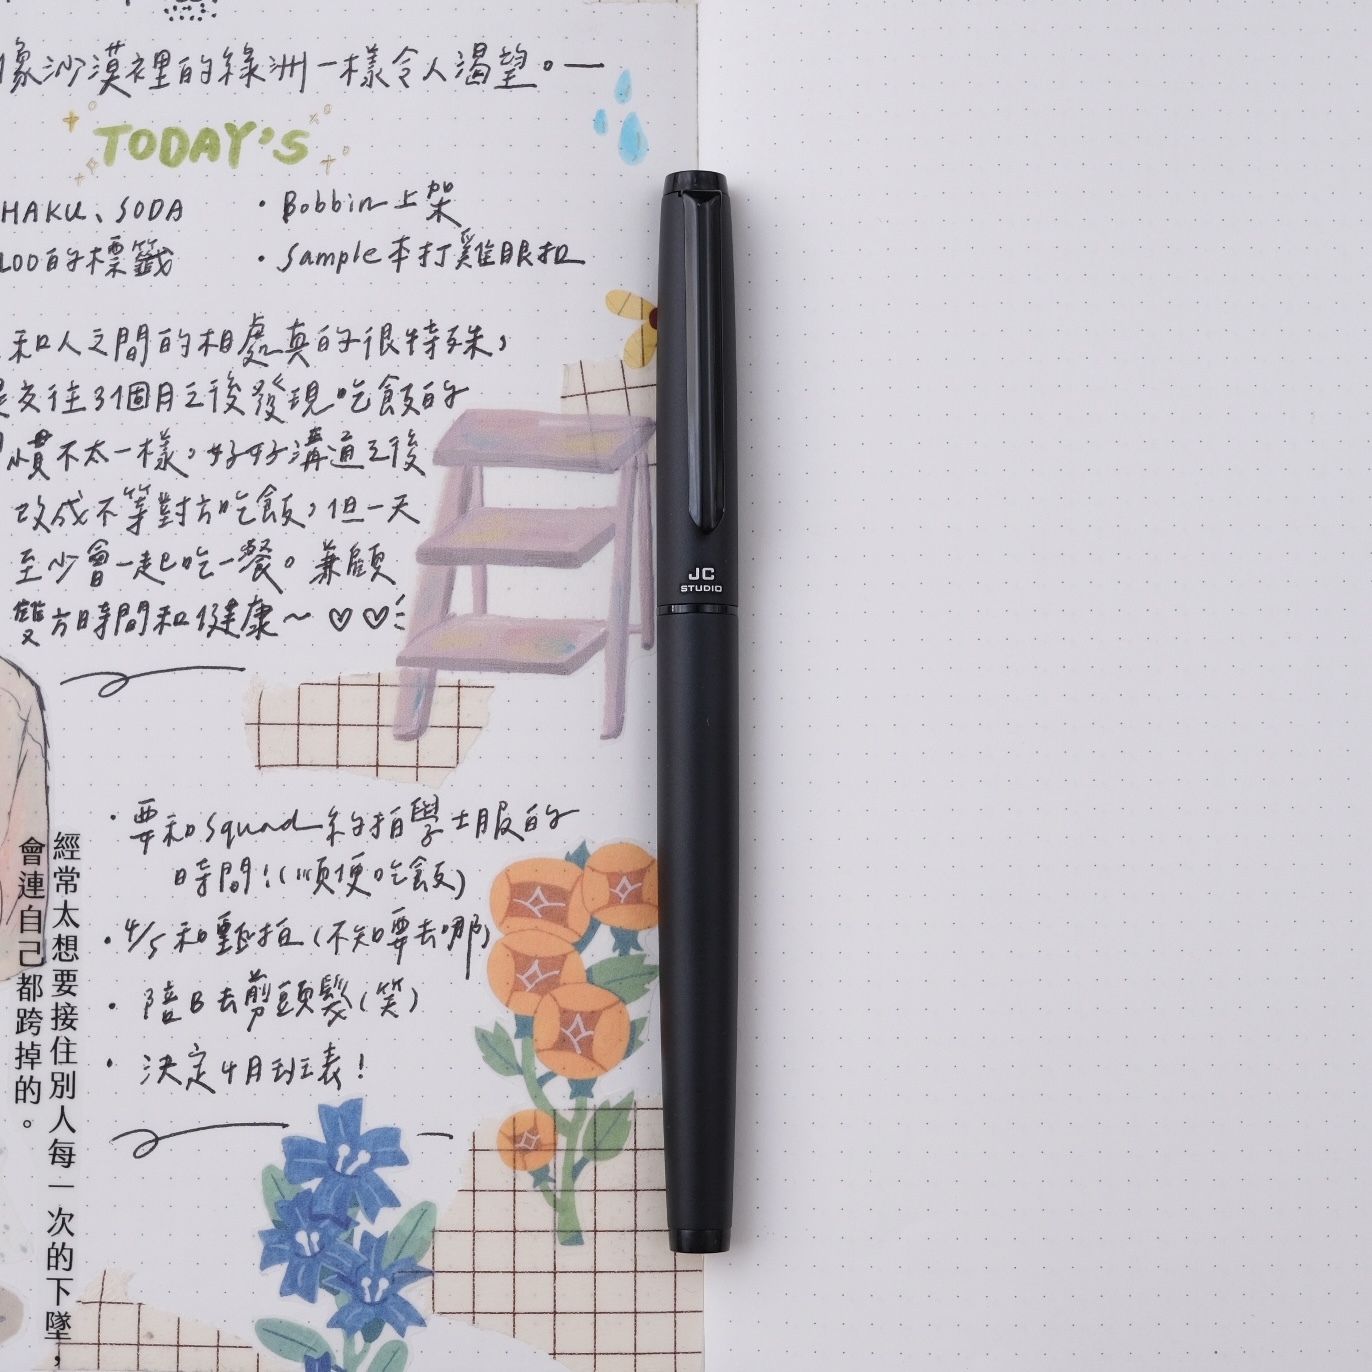 像沙漠裡的綠洲一樣令人渴望。—
TODAY'S
HAKU、SODA
LOD的標籤
· Bobbin上架
· Sample本打雞眼扣
和人之間的相處真的很特殊，
交往3個月之後發現吃飯的
習慣不太一樣，好好溝通之後
改成不等對方吃飯，但一天
至少會一起吃一餐。兼顧
雙方時間和健康～♡♡
· 要和Squad約拍學士服的
時間！(順便吃飯)
· 4/5 和甄拍(不知要去哪)
· 陪B去剪頭髮(笑)
· 決定4月班表！
經常太想要接住別人每一次的下墜，
會連自己都跨掉的。
JC
STUDIO